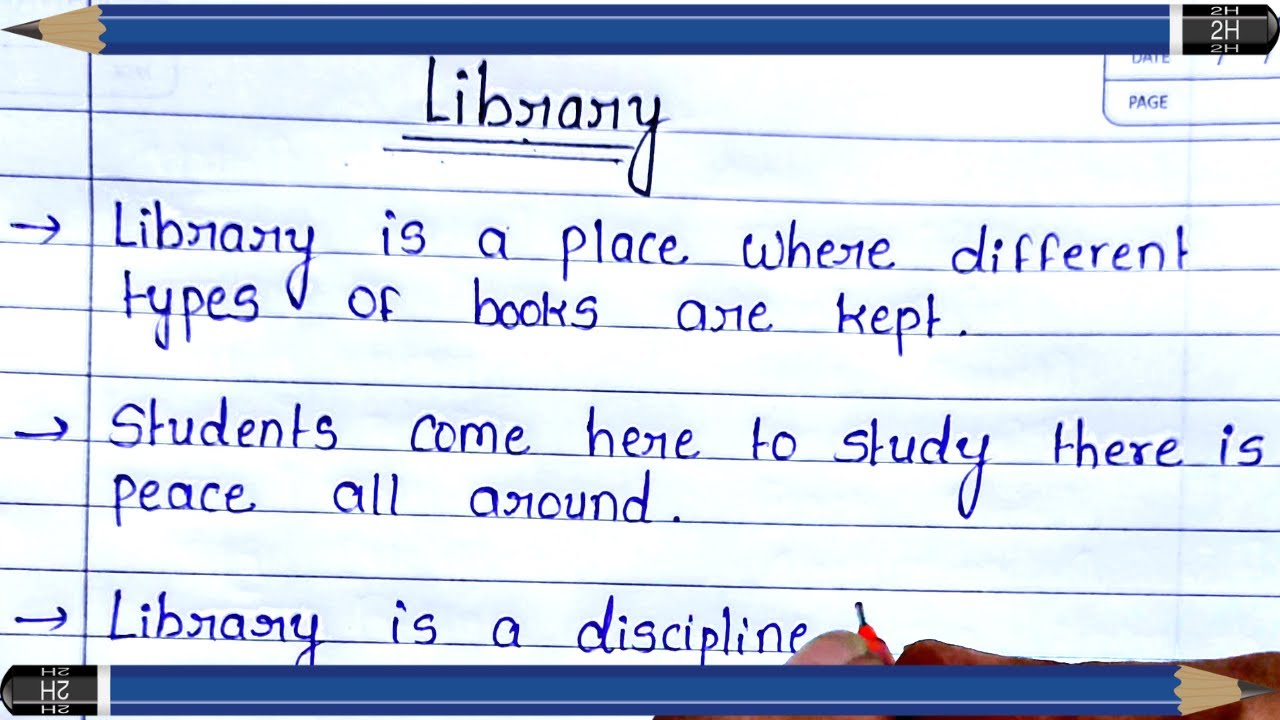 2H
2H
2H
DATE / /
PAGE
Library
→ Library is a place where different
types of books are kept.
→ Students come here to study there is
peace all around.
→ Library is a discipline
2H
2H
2H